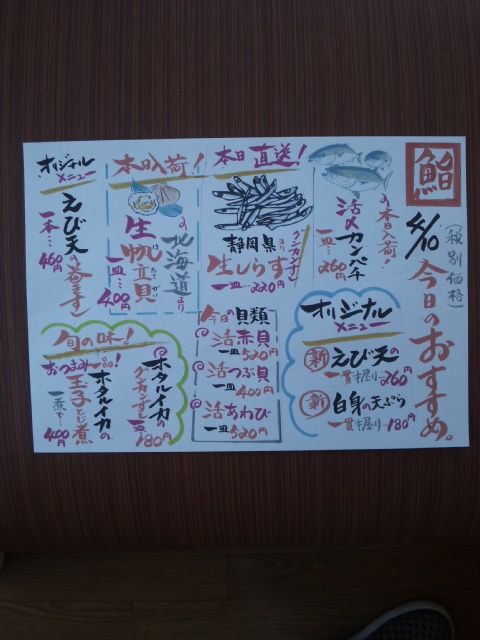 鮨
4/10 今日のおすすめ。
(税別価格)
本日入荷!
活〆カンパチ
一皿…260円
オリジナル
メニュー
新 えび天の
一貫にぎり…260円
新 白身の天ぷら
一貫にぎり…180円
本日直送!
静岡県より
生しらす
グンカンです
一皿…220円
今日の貝類
活赤貝
一皿520円
活つぶ貝
一皿400円
活あわび
一皿520円
本日入荷!
北海道より
生帆立貝
ほたてがい
一皿…400円
オリジナル
メニュー
えび天の巻きす!
一本…460円
旬の味!
ホタルイカの
グンカンです
一皿180円
おつまみ一品!
ホタルイカの
玉子とじ煮
一煮で…400円